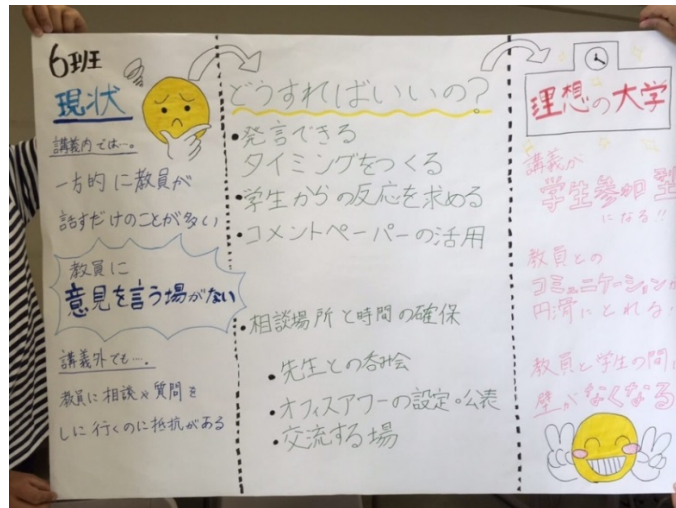 6班
現状
講義内では…。
一方的に教員が
話すだけのことが多い
教員に
意見を言う場がない
講義外でも…。
教員に相談や質問を
しに行くのに抵抗がある
どうすればいいの?
・発言できる
タイミングをつくる
・学生からの反応を求める
・コメントペーパーの活用
・相談場所と時間の確保
・先生との
・オフィスアワーの設定・公表
・交流する場
理想の大学
講義が
学生参加型
になる!!
教員との
コミュニケーションが
円滑にとれる
教員と学生の間
壁がなくなる